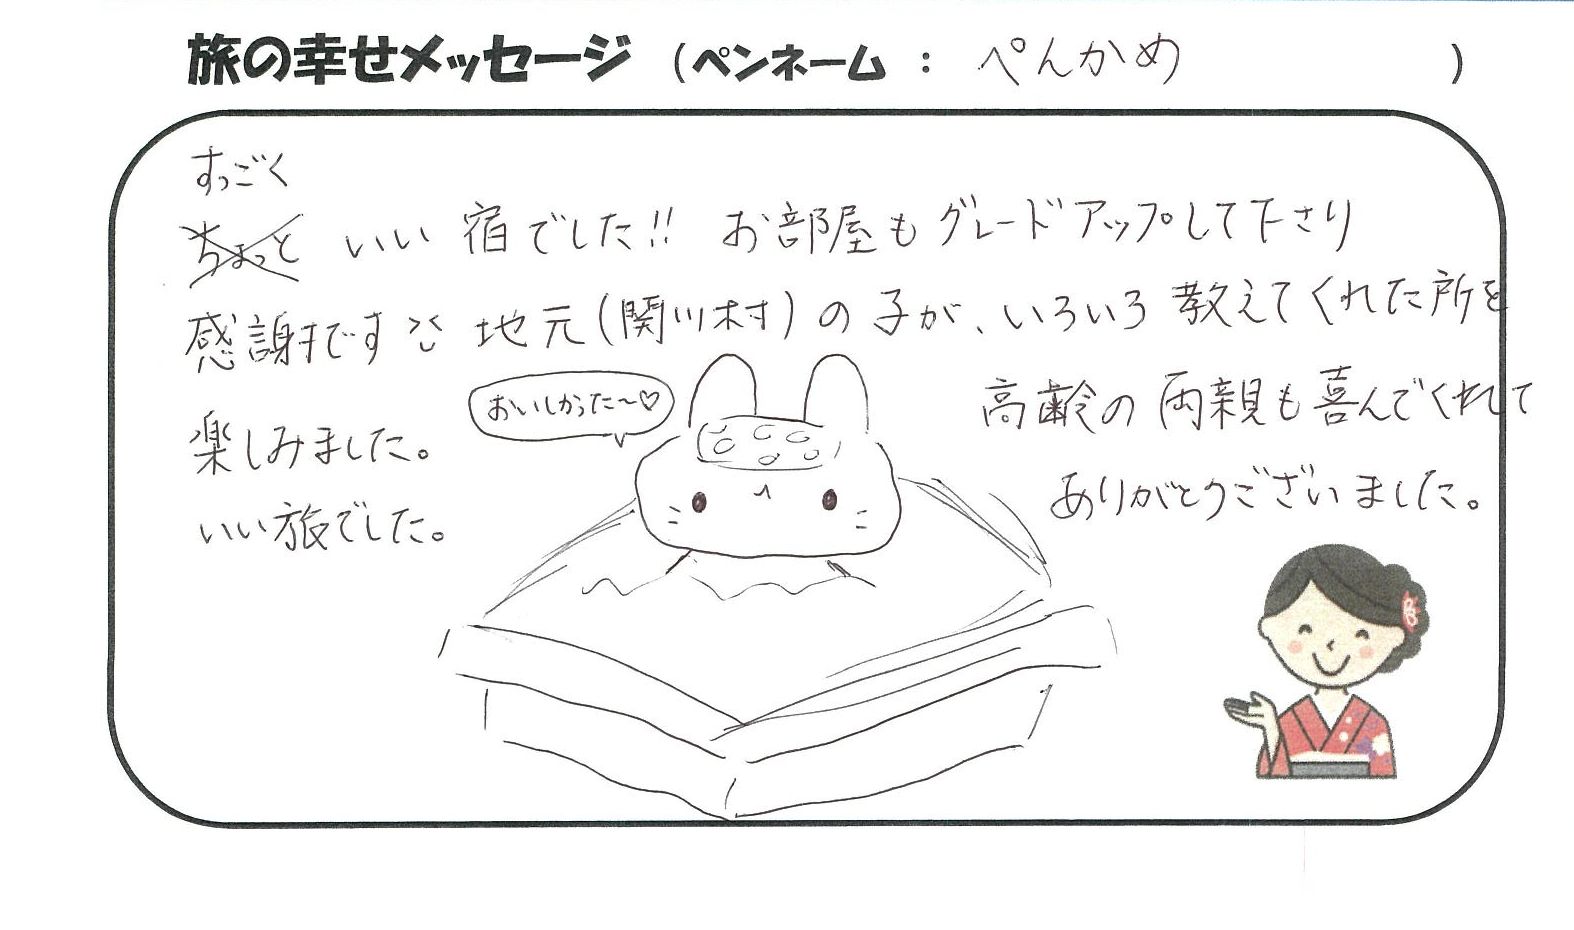 旅の幸せメッセージ (ペンネーム : ぺんかめ )
すっごく
ちょっと いい 宿でした!! お部屋も グレードアップして下さり
感謝です 地元(関川村)の子が、いろいろ 教えてくれた所を
楽しみました。
いい旅でした。
おいしかった〜♡
高齢の両親も喜んでくれて
ありがとうございました。